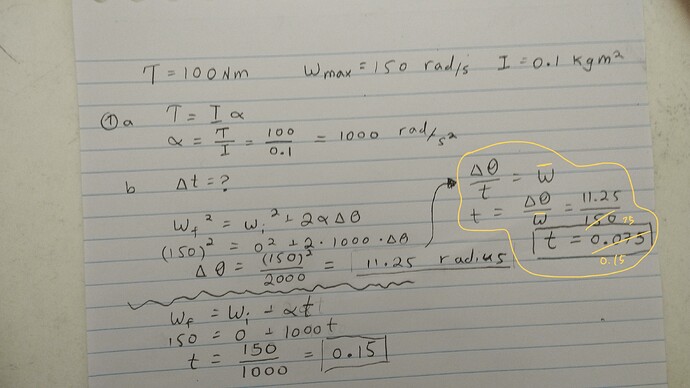 T = 100 Nm   Wmax = 150 rad/s   I = 0.1 kgm²
① a   T = I α
α = T/I = 100/0.1 = 1000 rad/s²
b   Δt = ?
Wf² = Wi² + 2αΔθ
(150)² = 0² + 2 · 1000 · Δθ
Δθ = (150)²/2000 = 11.25 radius
Δθ/t = W̅
t = Δθ/W̅ = 11.25/150 75
t = 0.075
0.15
Wf = Wi + αt
150 = 0 + 1000t
t = 150/1000 = 0.15